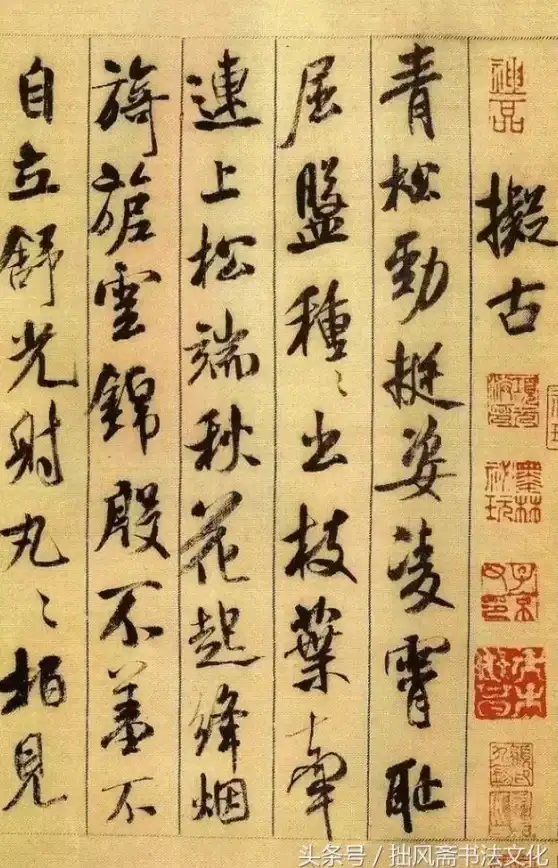 擬古
青松勁挺姿凌霄耻
屈盤種〻出枝葉牽
連上松端秋花起絳烟
旖旎雲錦殷不羞不
自立舒光射丸〻柏見
墨林祕玩
子京父印
头条号 / 拙风斋书法文化